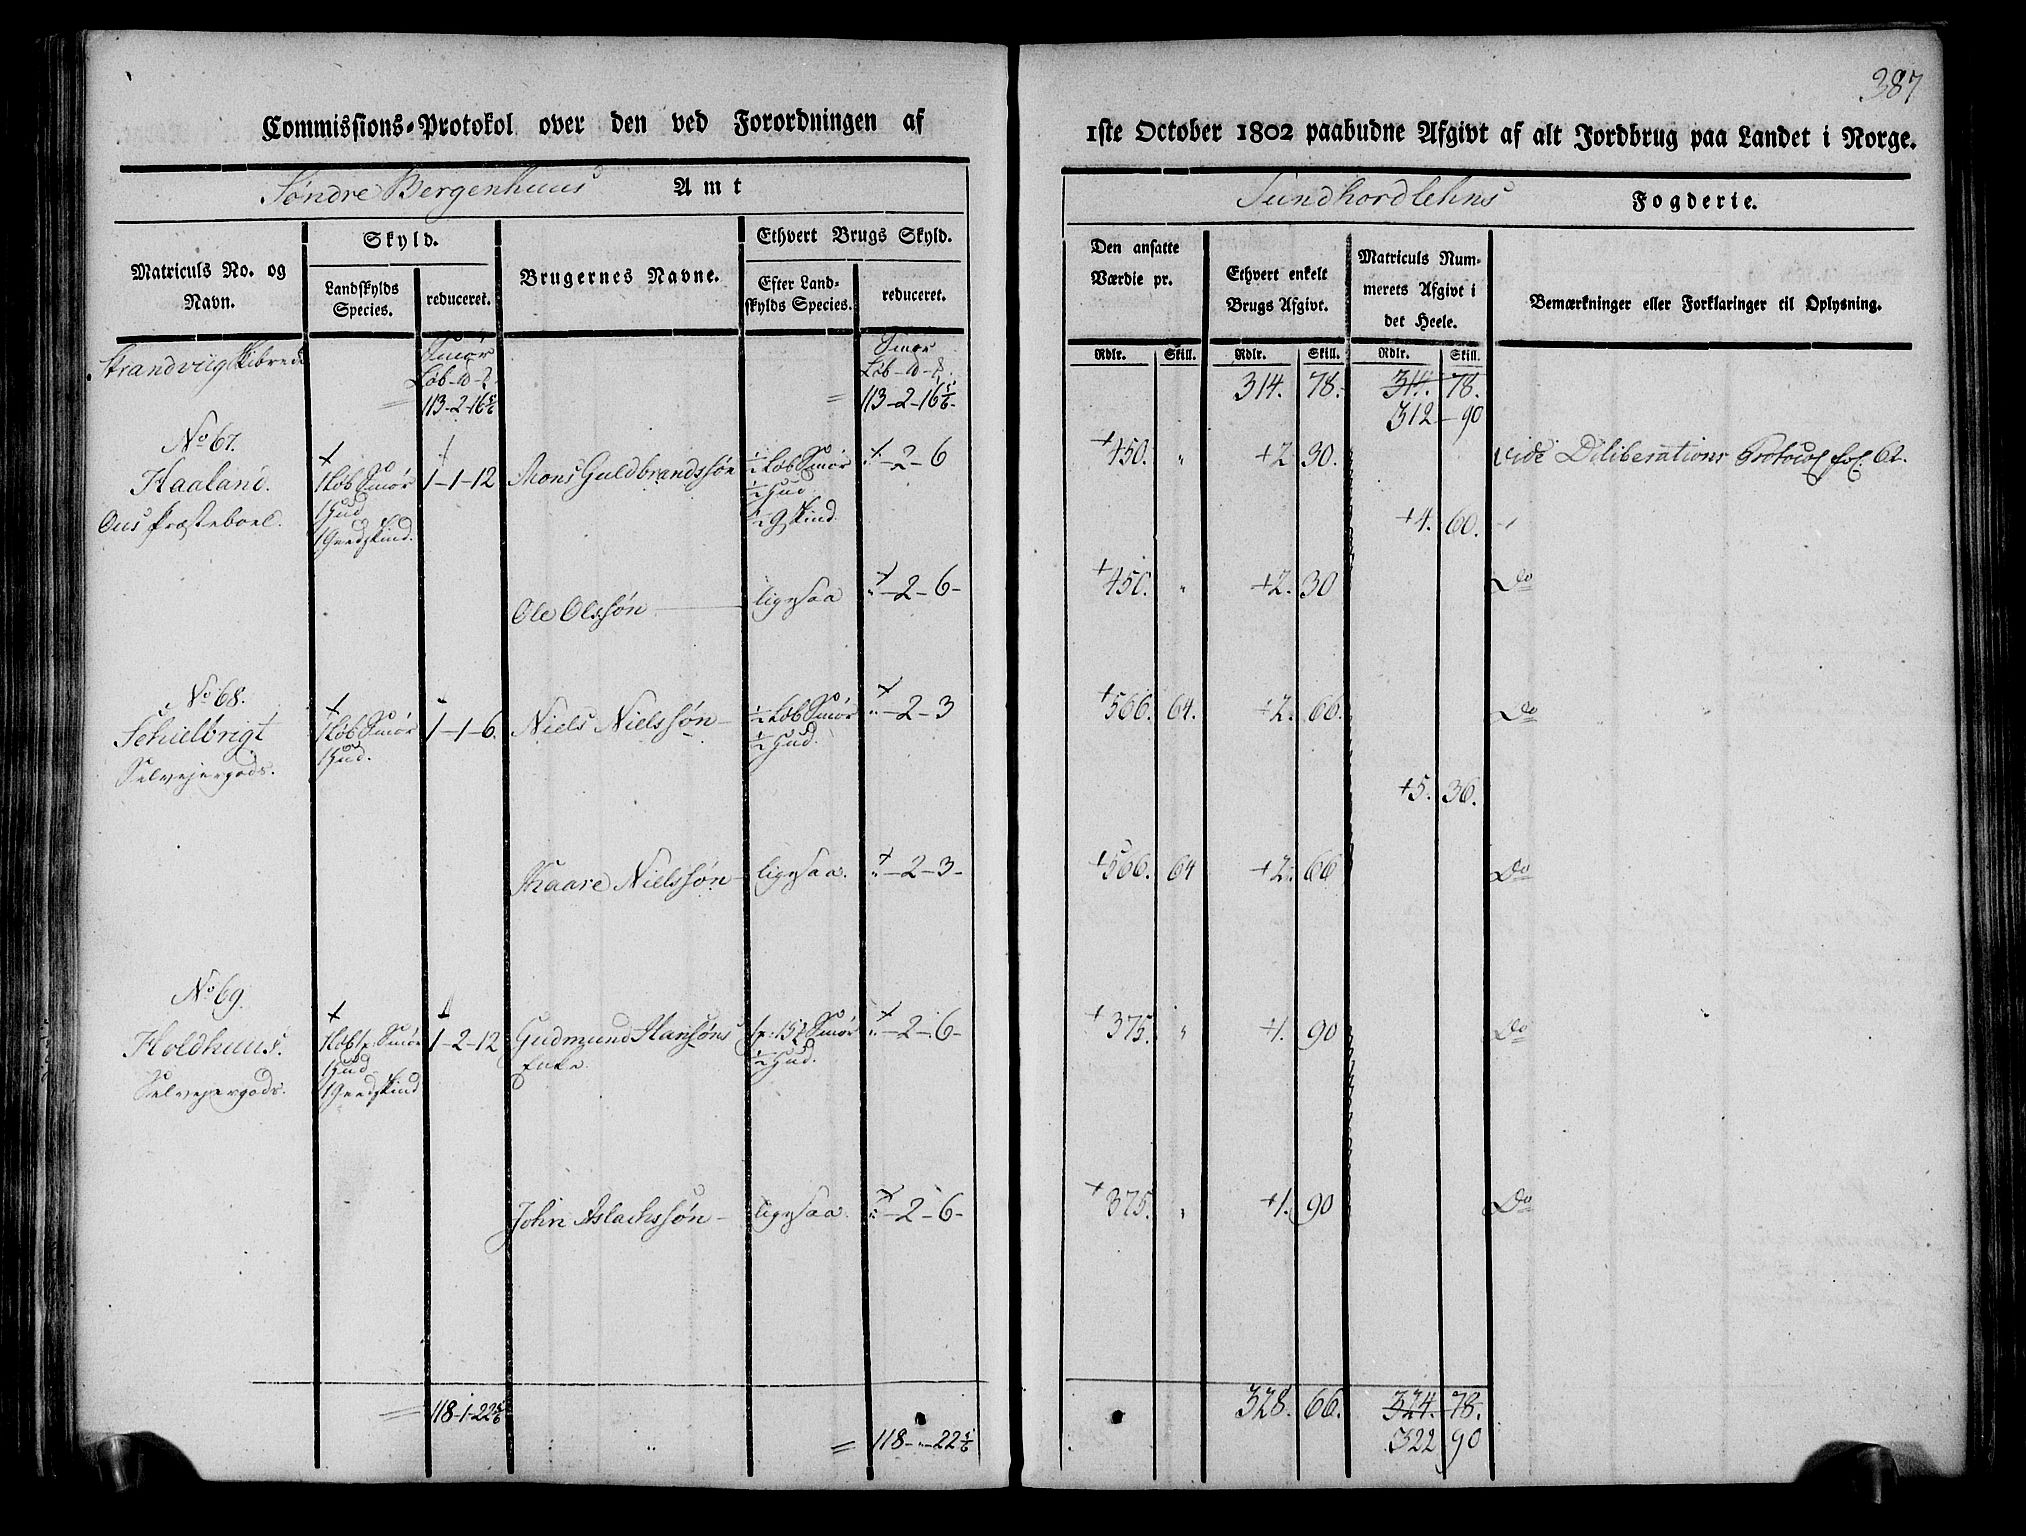 387
Commissions-Protokol over den ved Forordningen af
1ste October 1802 paabudne Afgivt af alt Jordbrug paa Landet i Norge.
Søndre Bergenhuus Amt
Sundhordlehns Fogderie.
Matriculs No. og
Navn.
Skyld.
Landskylds
Species.
reduceret.
Brugernes Navne.
Ethvert Brugs Skyld.
Efter Land-
skylds Species.
reduceret.
Den ansatte
Værdie pr.
Ethvert enkelt
Brugs Afgivt.
Matriculs Num-
merets Afgivt i
det Heele.
Bemærkninger eller Forklaringer til Oplysning.
Rdlr. Skill. Rdlr. Skill. Rdlr. Skill.
Strandviig Skibrede
Smør
Løb
113-2-16 5/6
Smør
Løb
113-2-16 5/6
314. 78. 314. 78.
312-90
No 67.
Haaland.
Ous Præsteboel.
1 Løb Smør
1 Hud
1 Geedskind.
1-1-12
Mons Guldbrandssøn
1/2 Løb Smør
1/2 Hud
1/2 G skind.
"-2-6
+450. " +2 30.
vide Deliberations Protocol fol. 62.
+4. 60.
Ole Olssøn
ligesaa
"-2-6-
+450. " +2. 30
Do
No 68.
Schielbrigt
Selvejergods.
1 Løb Smør
1 Hud.
1-1-6.
Niels Nielssøn
1/2 Løb Smør
1/2 Hud.
"-2-3
+566. 64. +2. 66.
Do
+5. 36.
Haare Nielssøn
ligesaa.
"-2-3-
+566. 64 +2. 66
Do
No 69.
Holdhuus.
Selvejergods.
1 Løb 1 p. Smør
1 Hud
1 Geedskind
1-2-12
Gudmund Hansøns
Enke.
1 p. 15 Smør
1/2 Hud.
"-2-6-
+375. " +1. 90
Do
John Aslachssøn
ligesaa.
"-2-6-
+375. " +1. 90
Do
118-1-22 5/6
118-"-22 5/6
328. 66. 324. 78.
322 90